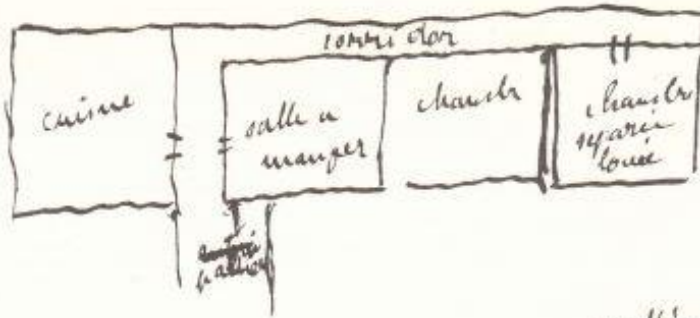 corridor
cuisine
salle a
manger
chambre
chambre
louée
palier